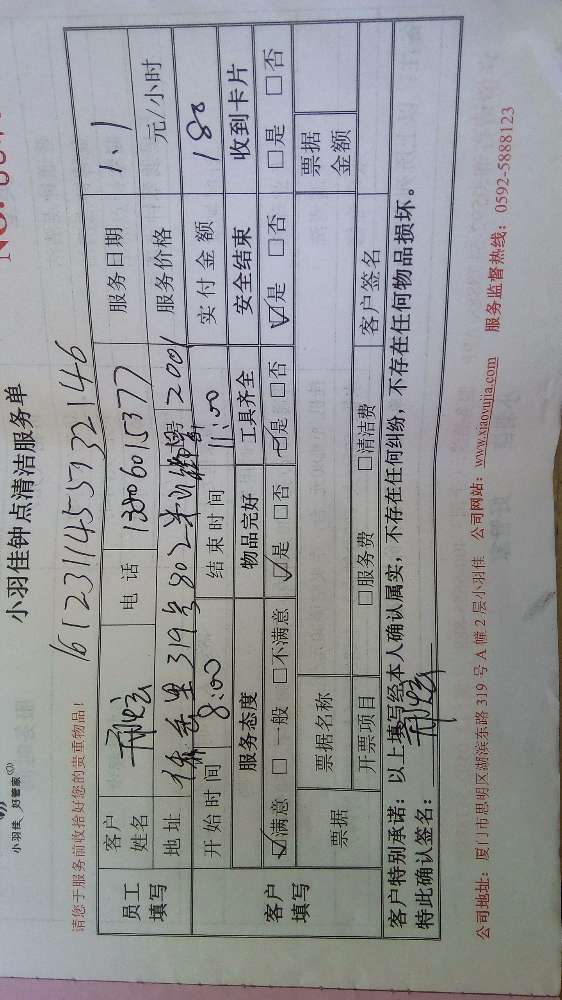 小羽佳 好管家
小羽佳钟点清洁服务单
NO.
请您于服务前收拾好您的贵重物品!
1612311455732146
员工填写 客户姓名 电话 服务日期 1.1
地址 319号802 2001 服务价格 元/小时
开始时间 8:00 结束时间 11:00 实付金额 180
客户填写 服务态度 物品完好 工具齐全 安全结束 收到卡片
☑满意 □一般 □不满意 ☑是 □否 ☑是 □否 ☑是 □否 □是 □否
票据 票据名称 票据金额
开票项目 □服务费 □清洁费 客户签名
客户特别承诺:以上填写经本人确认属实,不存在任何纠纷,不存在任何物品损坏。
特此确认签名:
公司地址:厦门市思明区湖滨东路 319 号 A 幢 2 层小羽佳 公司网站:www.xiaoyujia.com 服务监督热线:0592-5888123